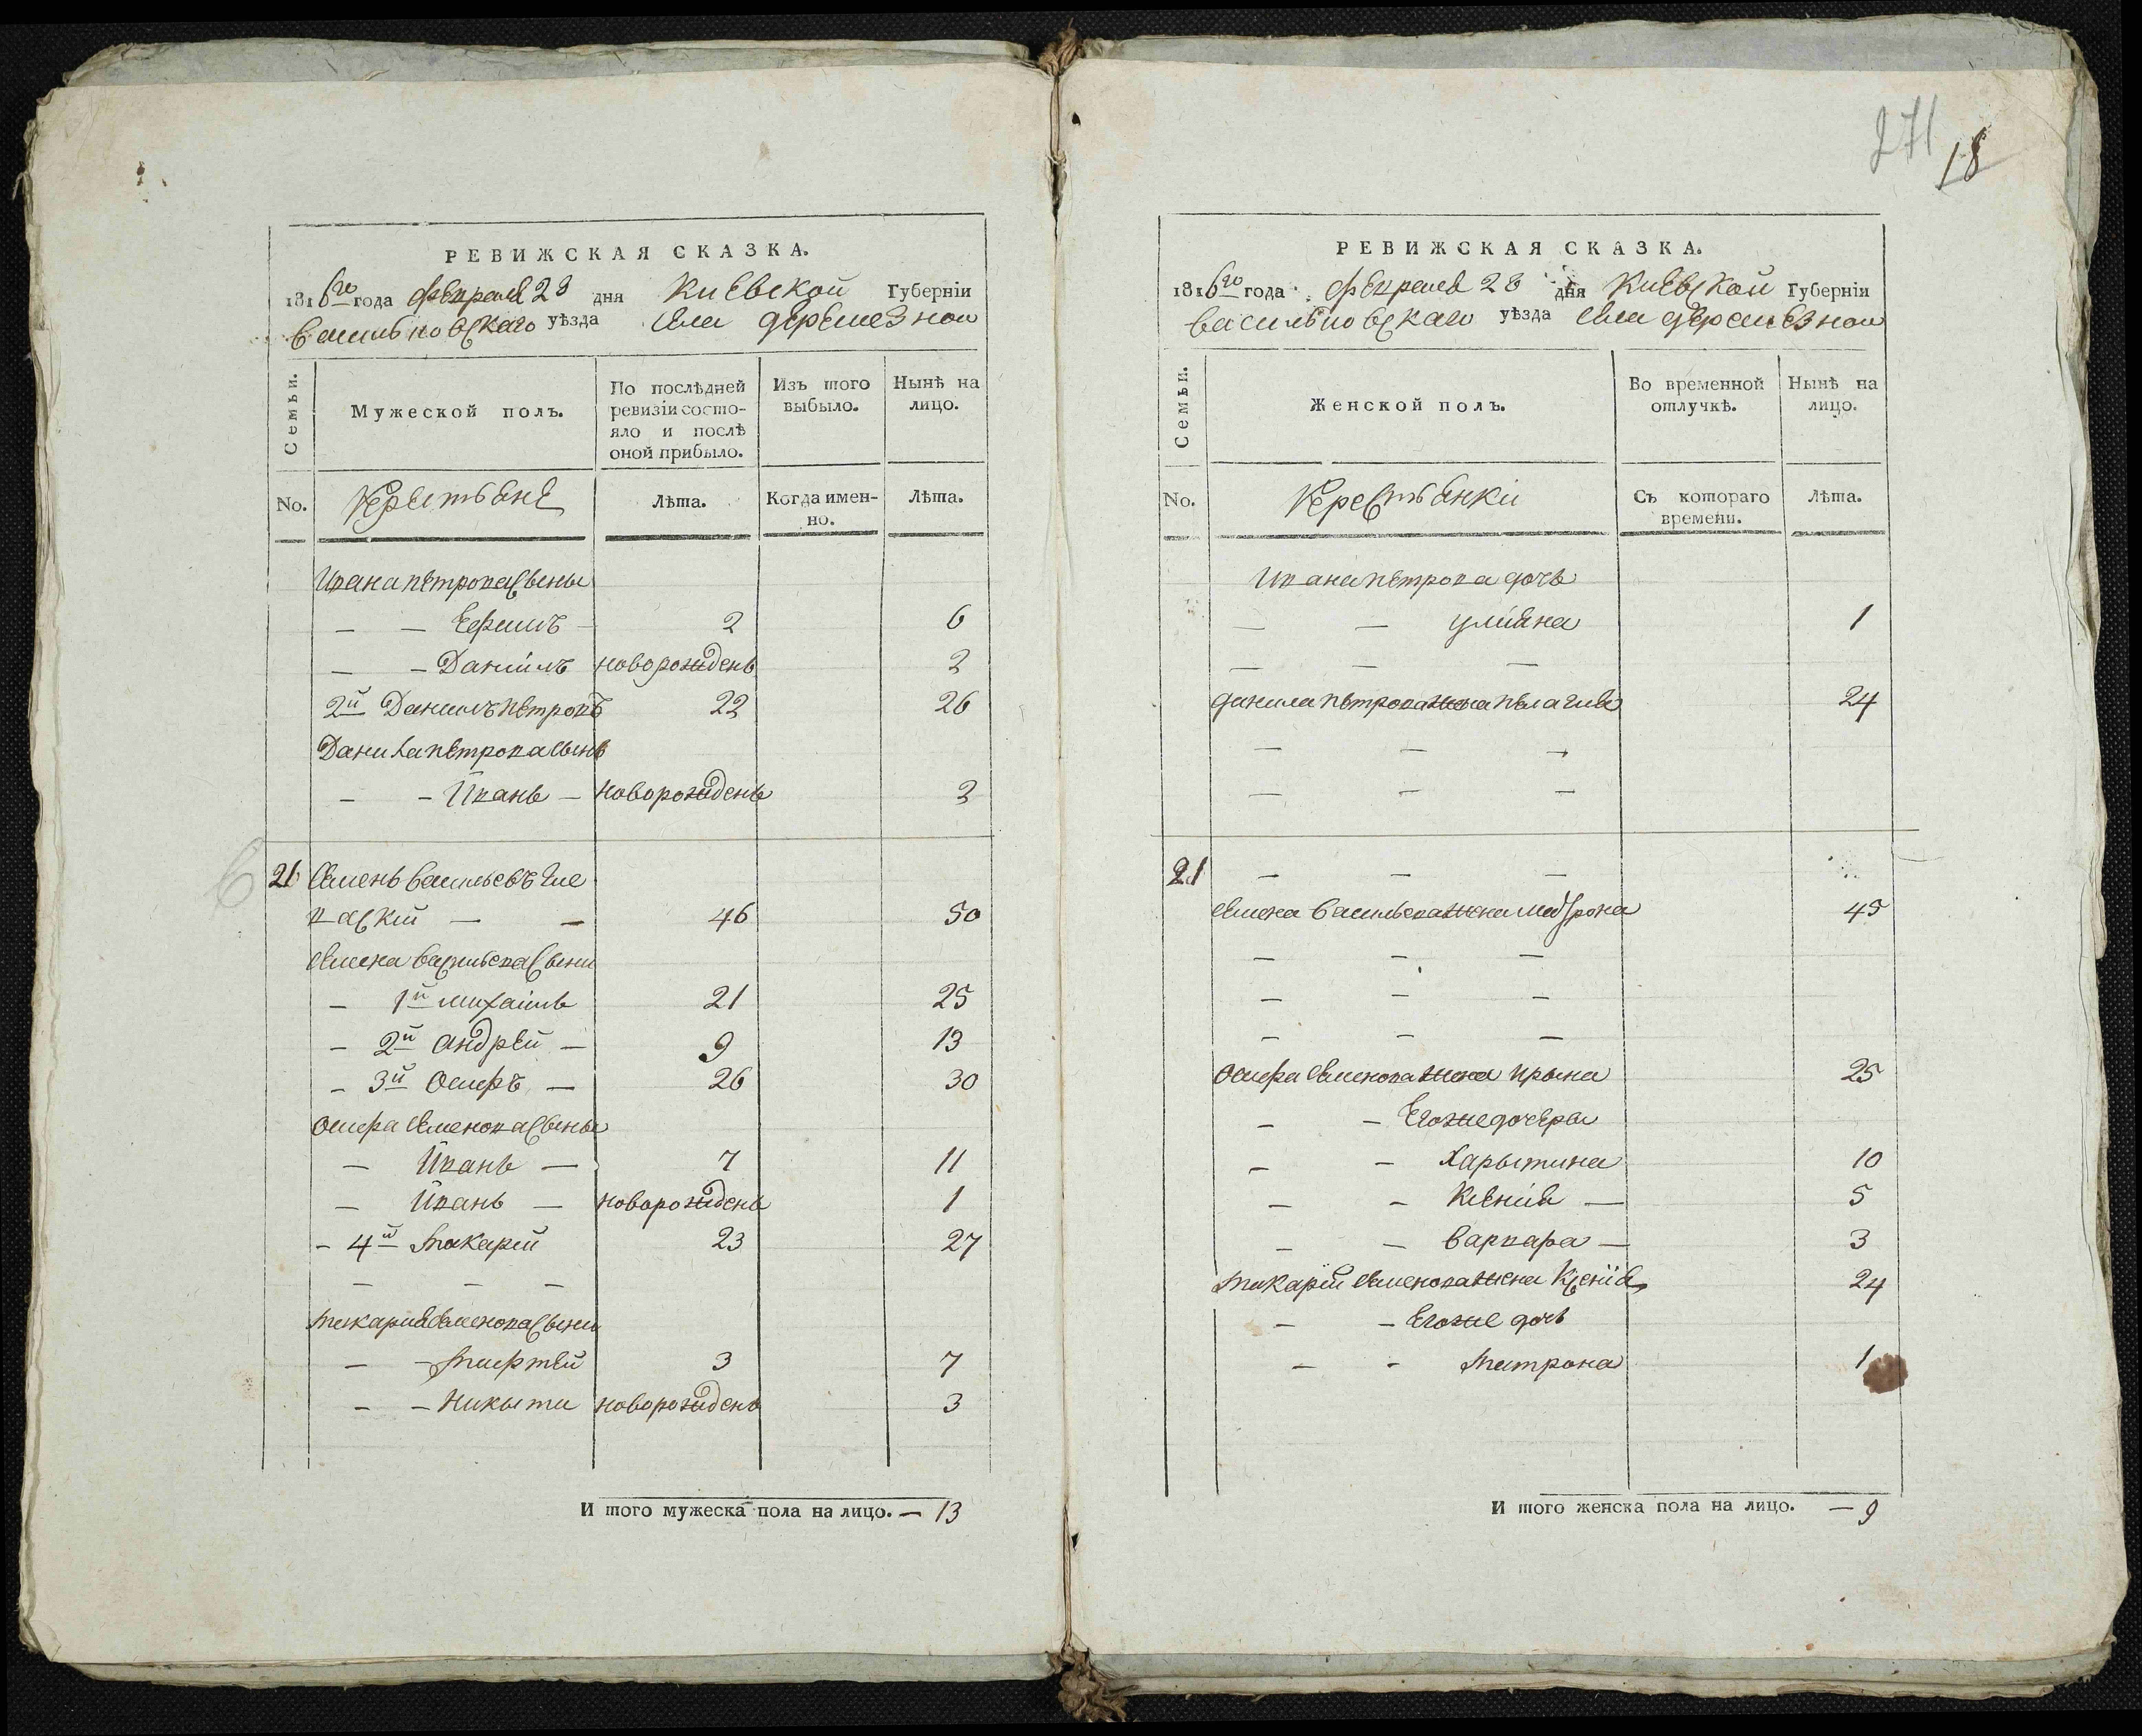 271
18
РЕВИЖСКАЯ СКАЗКА.
1816го года февраля 28 дня Киевской Губерніи
Васильковскаго уѣзда села деремезнои
Семьи.
Мужеской полъ.
По послѣдней ревизіи состояло и послѣ оной прибыло.
Изъ того выбыло.
Нынѣ на лицо.
No.
Крестьяне
Лѣта.
Когда именно.
Лѣта.
Ивана петрова сыны
— — Ефимъ — 2 6
— — Данилъ новорожденъ 2
2й Данилъ петровъ 22 26
Данила петрова сынъ
— — Иванъ — новорожденъ 3
6
21 Семенъ васильевъ
— — 46 50
семена васильева сыны
— 1й михаилъ 21 25
— 2й андрей — 9 13
— 3й Осифъ — 26 30
Осифа семенова сыны
— Иванъ — 7 11
— Иванъ — новорожденъ 1
— 4й Макарій 23 27
— — —
макария семенова сыны
— — 3 7
— — Никыта новорожденъ 3
И того мужеска пола на лицо. — 13
РЕВИЖСКАЯ СКАЗКА.
1816го года февраля 28 дня Киевской Губерніи
васильковскаго уѣзда села деремезнои
Семьи.
Женской полъ.
Во временной отлучкѣ.
Нынѣ на лицо.
No.
Крестьянкі
Съ котораго времени.
Лѣта.
Ивана петрова дочь
— — улияна 1
— — —
данила петрова жена пелагия 24
— — —
— — —
21 — — —
семена васильева жена мадрона 45
— — —
— — —
— — —
Осифа семенова жена Ирына 25
— — Егоже дочеры
— — Харытина 10
— — Ксения — 5
— — варвара — 3
макарій семенова жена Ксенія 24
— — Егоже дочь
— — матрона 1
И того женска пола на лицо. — 9